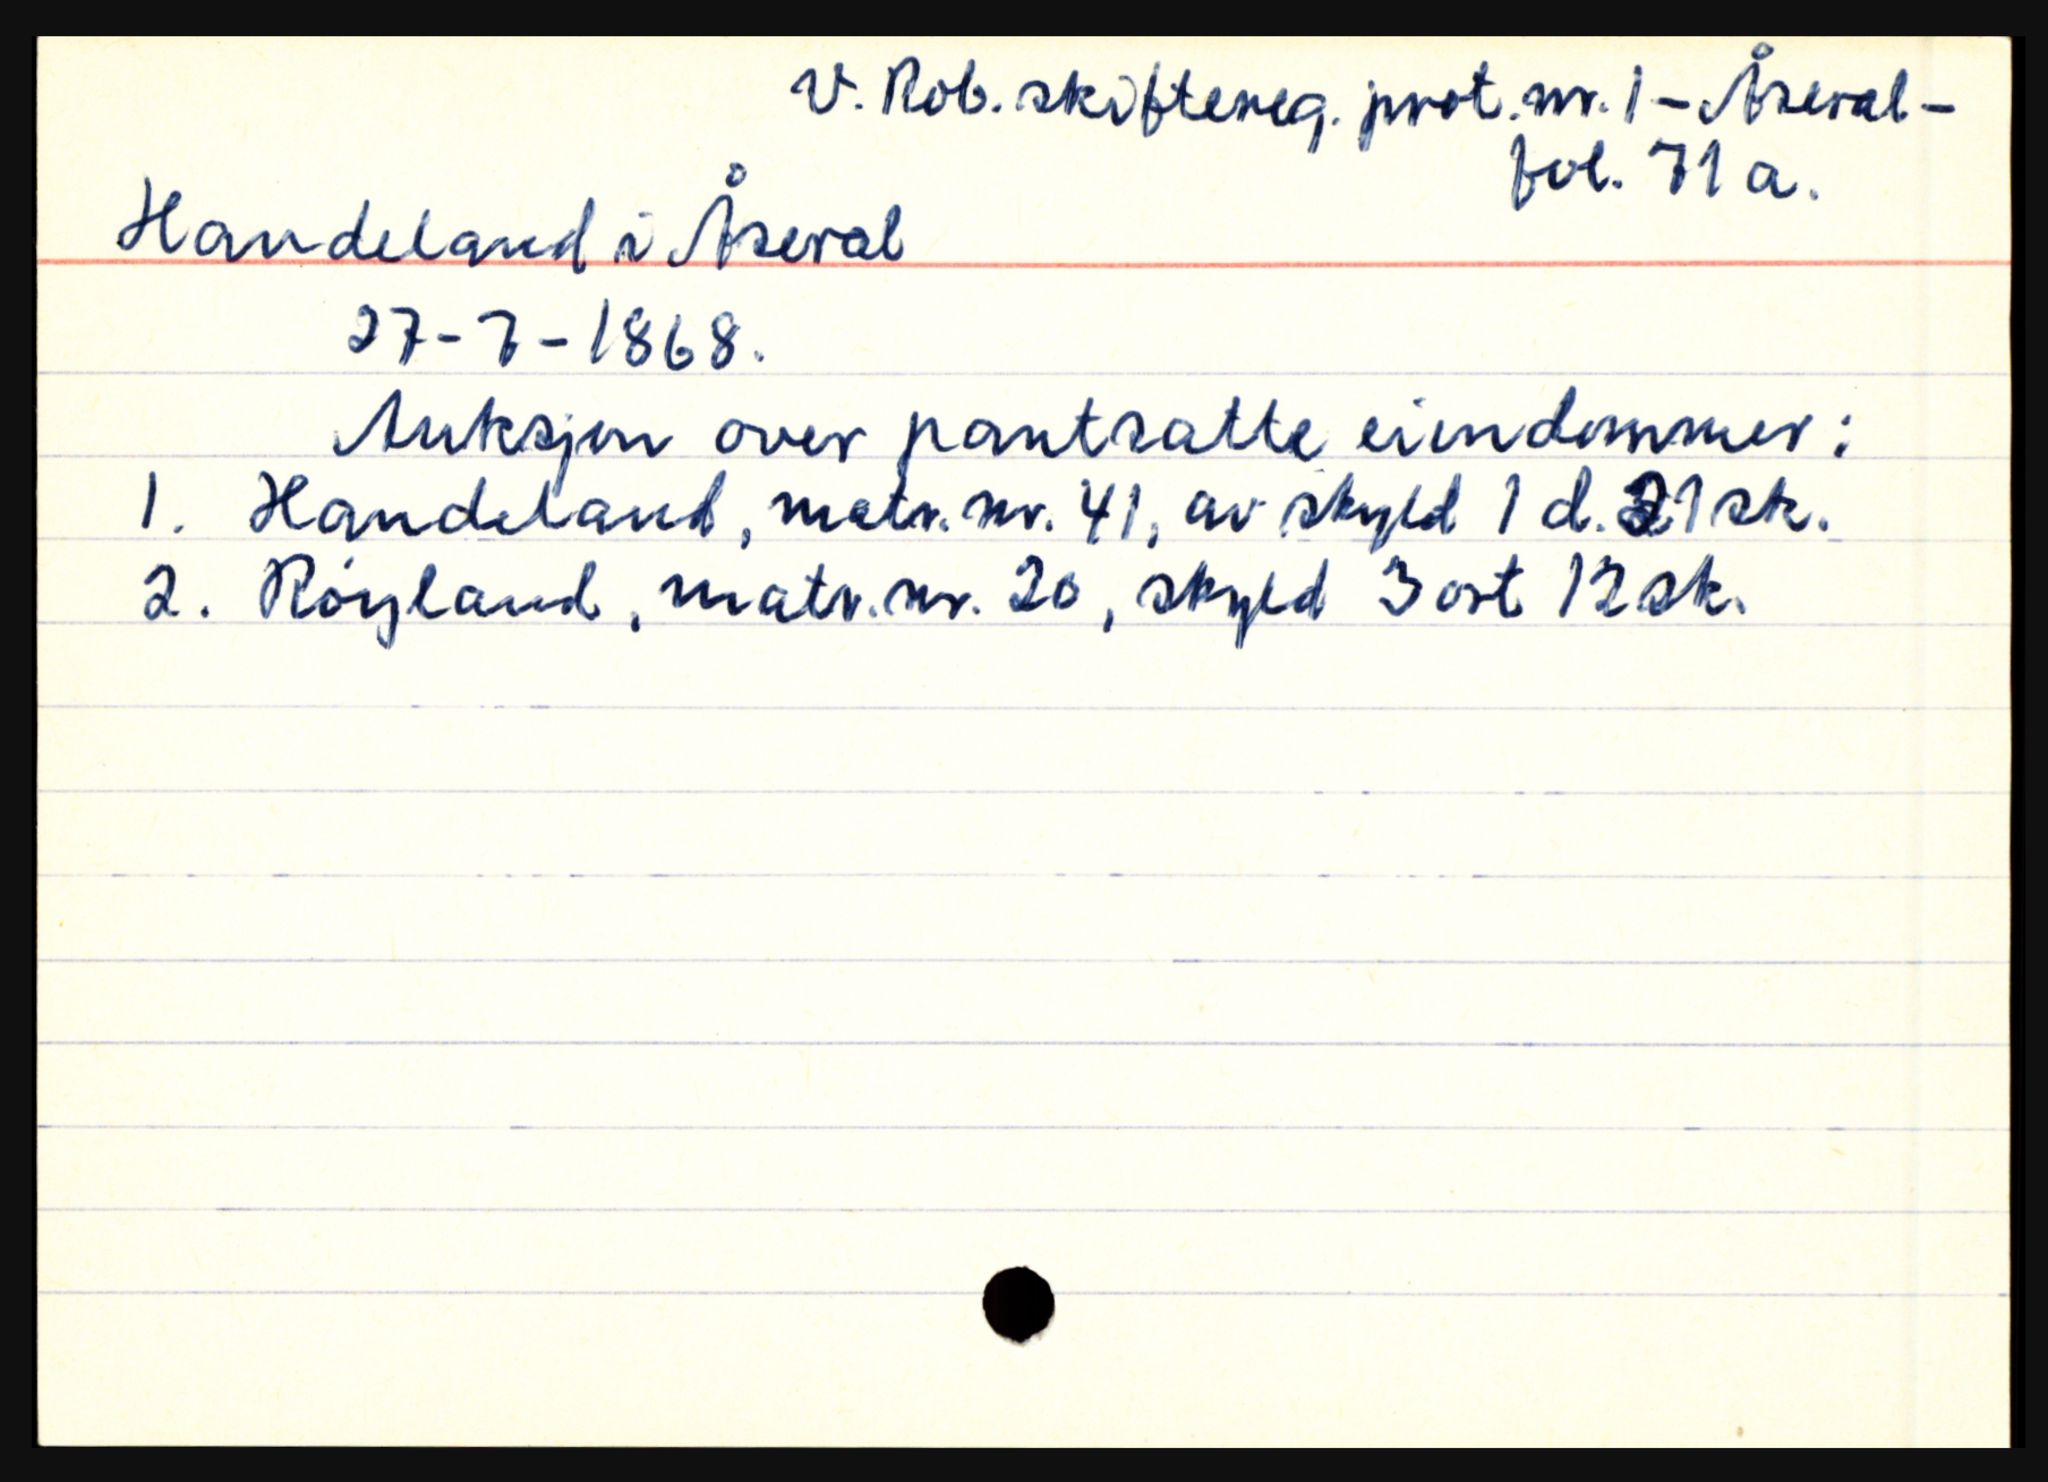 V. Rob. skiftereg. prot. nr. 1 - Åseral -
fol. 71 a.
Handeland i Åseral
27-7-1868.
Auksjon over pantsatte eiendommer:
1. Handeland, matr. nr. 41, av skyld 1 d. 21 sk.
2. Röyland, matr. nr. 20, skyld 3 ort 12 sk.